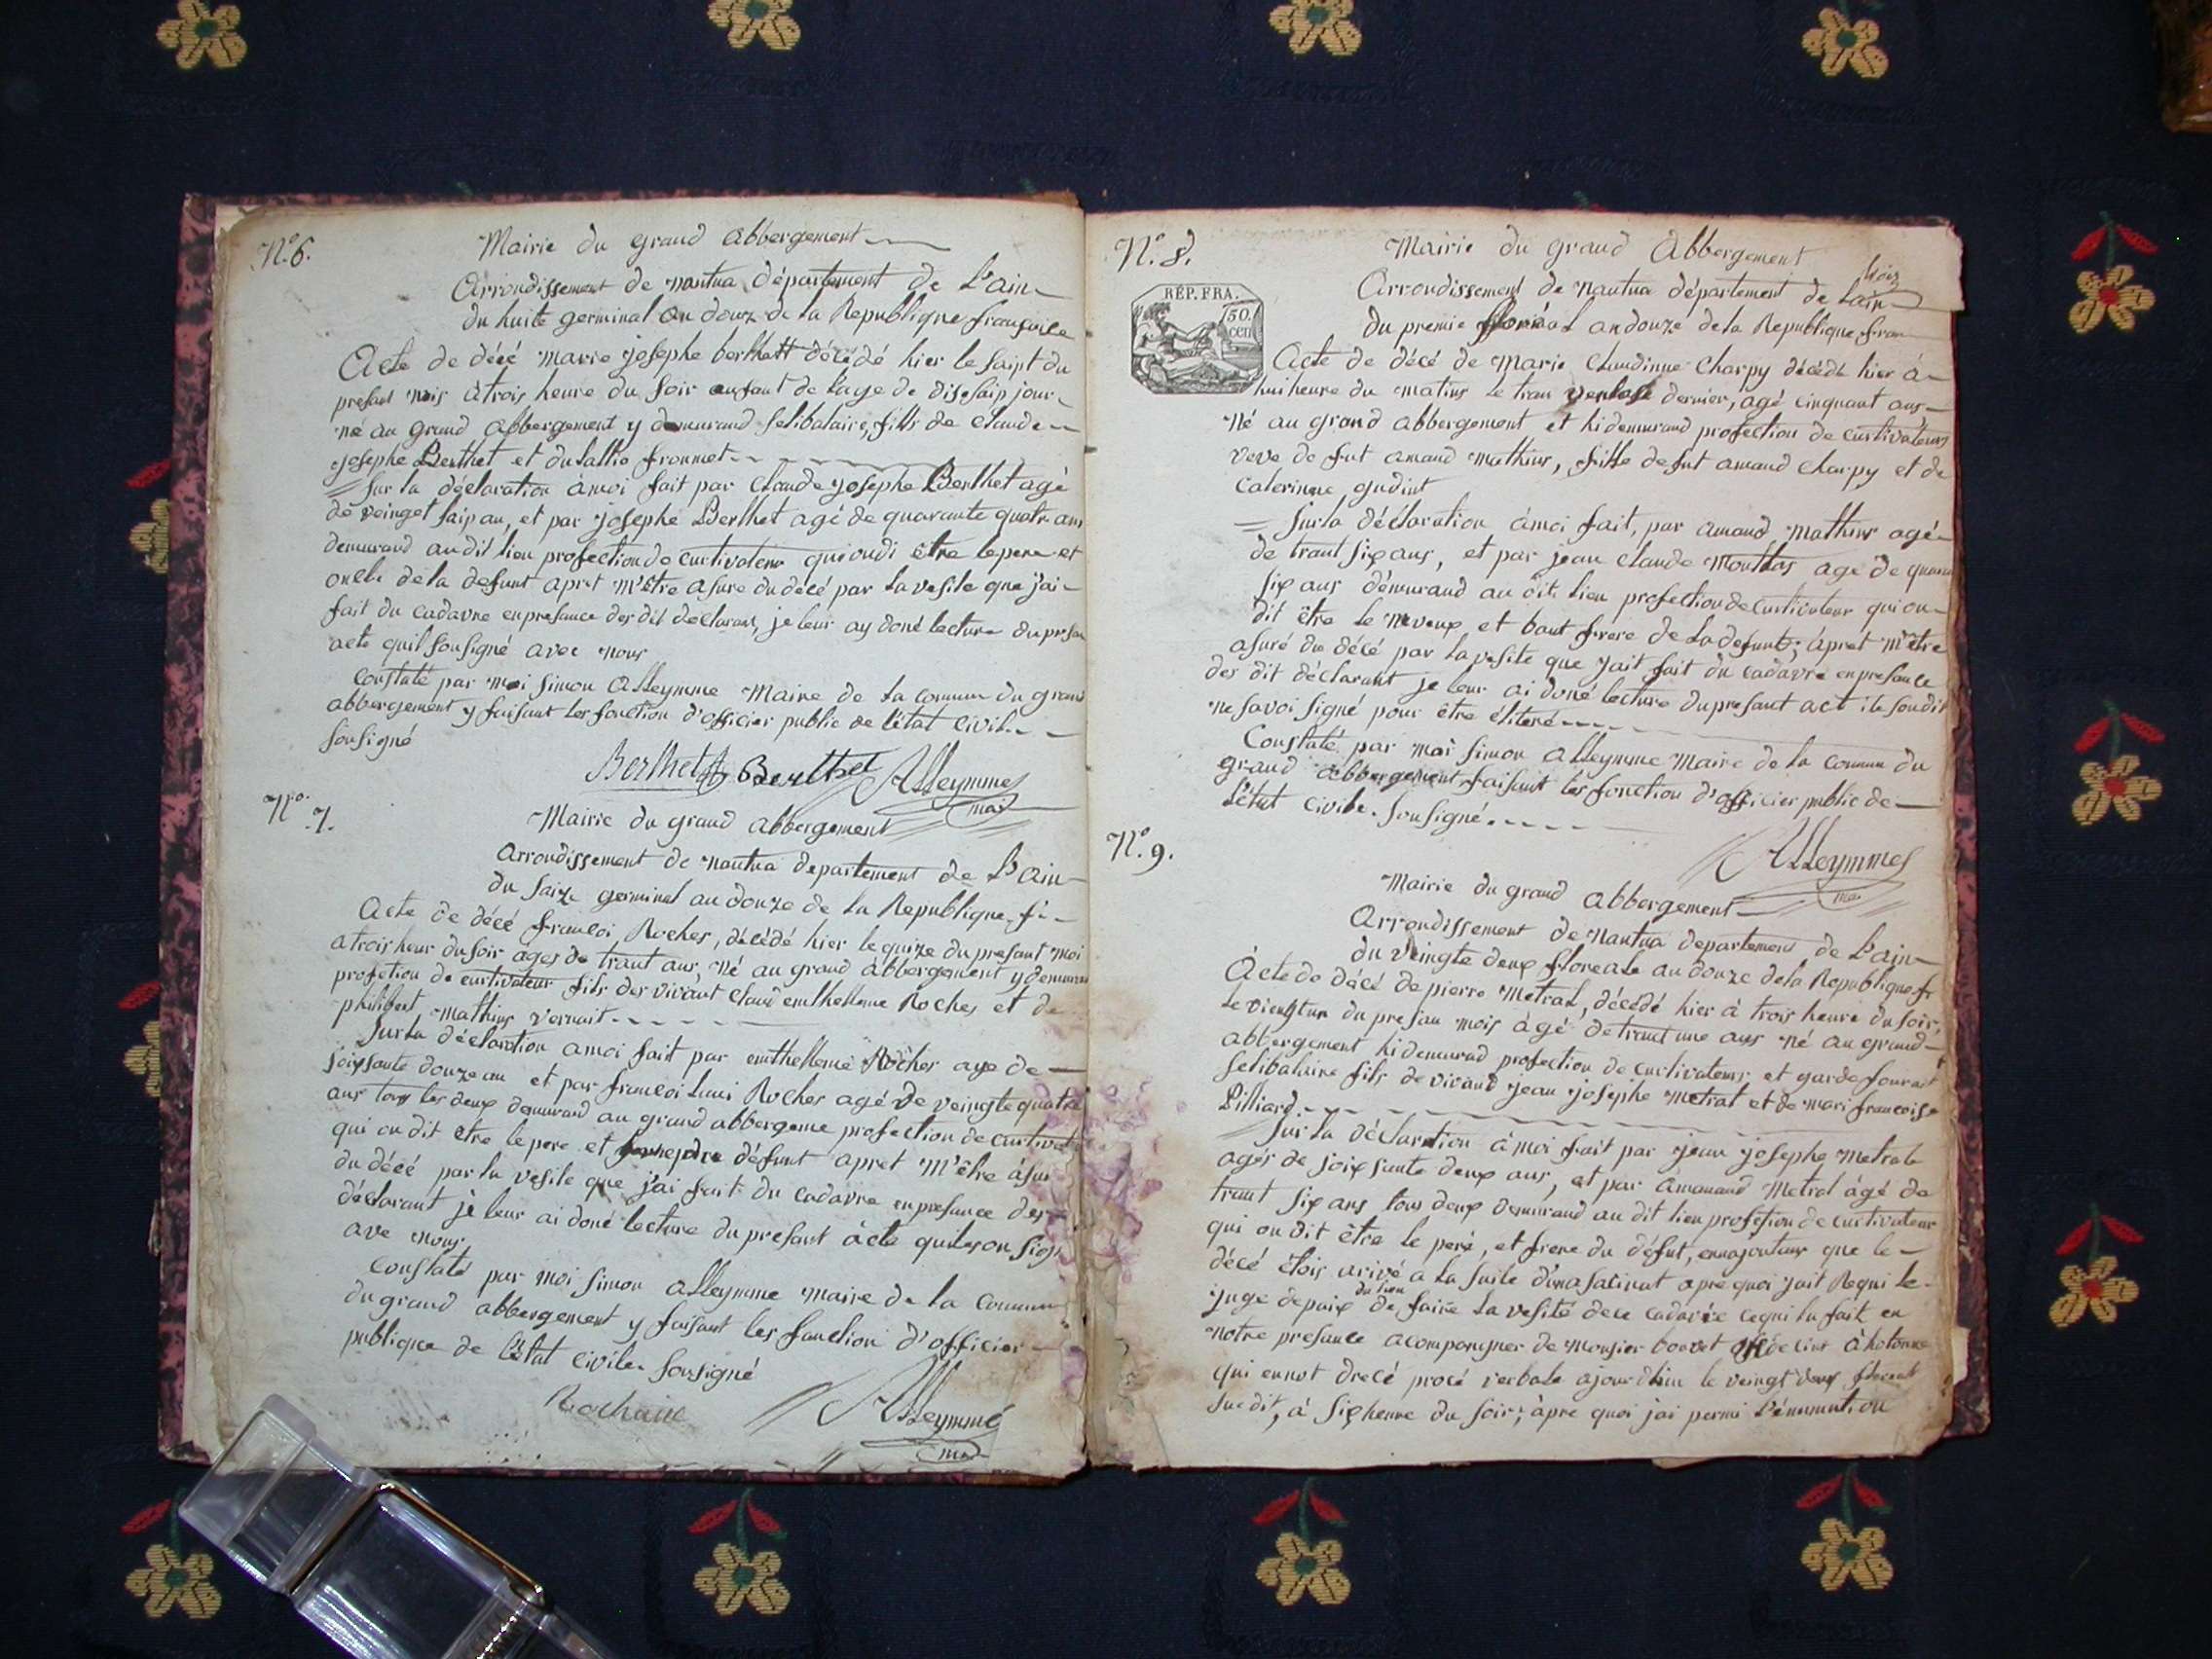 N.º 6.
Mairie du grand abbergement
Arrondissement de nantua Département de L'ain
du huite germinal an douz de la Republique françoise
Acte de décé marie josephe berthett décédé hier le saipt du
presant mois à trois heure du soir enfant de l'age de disesaip jour
né au grand abbergement y demurand selibataire, fille de claude
josephe Berthet et du frommet
Sur la déclaration àmoi fait par Claude josephe Berthet agé
de veinget saip an, et par josephe Berthet agé de quarante quatr ans
demurand au dit lieu profection de curtivateur qui ondi être lepere et
oncle de la defunt apret m'être asure du décé par la vesite que j'ai
fait du cadavre enpresance des dit declarant, je leur ay doné lecture du presan
acte quil sousigné avec nous
constaté par moi simon alleymme maire de la comune du grand
abbergement y faisant les fonction d'officier public de l'état civil
sousigné
Berthet Berthet Alleymmes
maire
N.º 7.
Mairie du grand abbergement
arrondissement de nantua departement de L'ain
du saize germinal an douze de la Republique f
Acte de décé françoi Roches, décédé hier le quize du presant moi
a trois heur du soir ages de trant ans, né au grand abbergement y demuran
profection de curtivateur fils des vivant Claud enthelleme Roches et de
philibert mathius vernait
Sur la déclaration amoi fait par enthelleme Roches age de
soixsante douze an et par françoi Loui Roches agé de veingte quatre
ans tous les deux demurand au grand abbergeme profection de curtivat
qui on dit être le pere et défunt apret m'être àsur
du décé par la vesite que j'ai fait du cadavre enpresance des
déclarant je leur ai doné lecture du presant àcte quileson sign
ave nous
constaté par moi simon alleymme maire de la comune
du grand abbergement y faisant les fonction d'officier
publique de L'état civile sousigné
Rochaine Alleymmé
maire
N.º 8.
Mairie du grand Abbergement
Arrondissement de nantua département de Lain
RÉP. FRA.
50.
cen
du premie floréal an douze de la Republique fran
Acte de décé de Marie Claudinne Charpy décédé hier à
hui heure du matins le tran ventose dernier, agé cinquant ans
Né au grand abbergement et hi demurand profection de curtivateurs
veve de fut amand Mathius, fille de fut amand charpy et de
caterinne gudint
Sur la déclaration àmoi fait, par amand mathius agé
de trant six ans, et par jean claude Mouthas age de quaran
six ans démurand au dit lieu profection de curtivateur qui on
dit être le neveux et baut frere de La defunt; àpret m'être
asuré du décé par la vesite que jait fait du cadavre enpresance
des dit déclarant je leur ai doné lecture du presant act ile son dit
ne savoi signé pour être élitere
Constaté par moi simon alleymme maire de la comun du
grand abbergement faisant les fonction d'officier public de
L'état civile. sousigné.
Alleymmes
maire
N.º 9.
Mairie du grand abbergement
Arrondissement de Nantua departement de L'ain
du veingte deux floreale an douze dela Republique fr
Acte de décé de pierre Metral, décédé hier à trois heure du soir,
Le viengtun du presan mois àgé de trant une ans né au grand
abbergement hi demurand profection de curtivateurs et garde fourait
selibataire fils de vivand jean josephe metrat et de mari françoise
Billiard
Sur la déclaration à moi fait par jean josephe Metrale
agés de soixsante deux ans, et par amanand Metral àgé de
trant six ans tous deux demurand au dit lieu profection de curtivateur
qui on dit être le peré, et frere du défut, ennajoutans que le
décé étois arivé a la suite d'unasatinat apre quoi jait Requi le
du lieu
juge depaix de faire la vesité dece cadavre cequi la fait en
notre presance acompangner de monsier bonvot Médecint à hotonne
qui ennot drecé procé verbale ajourdhui le veingt deux floreale
sue dit, à six heure du soir; àpre quoi jai permi L'énumation